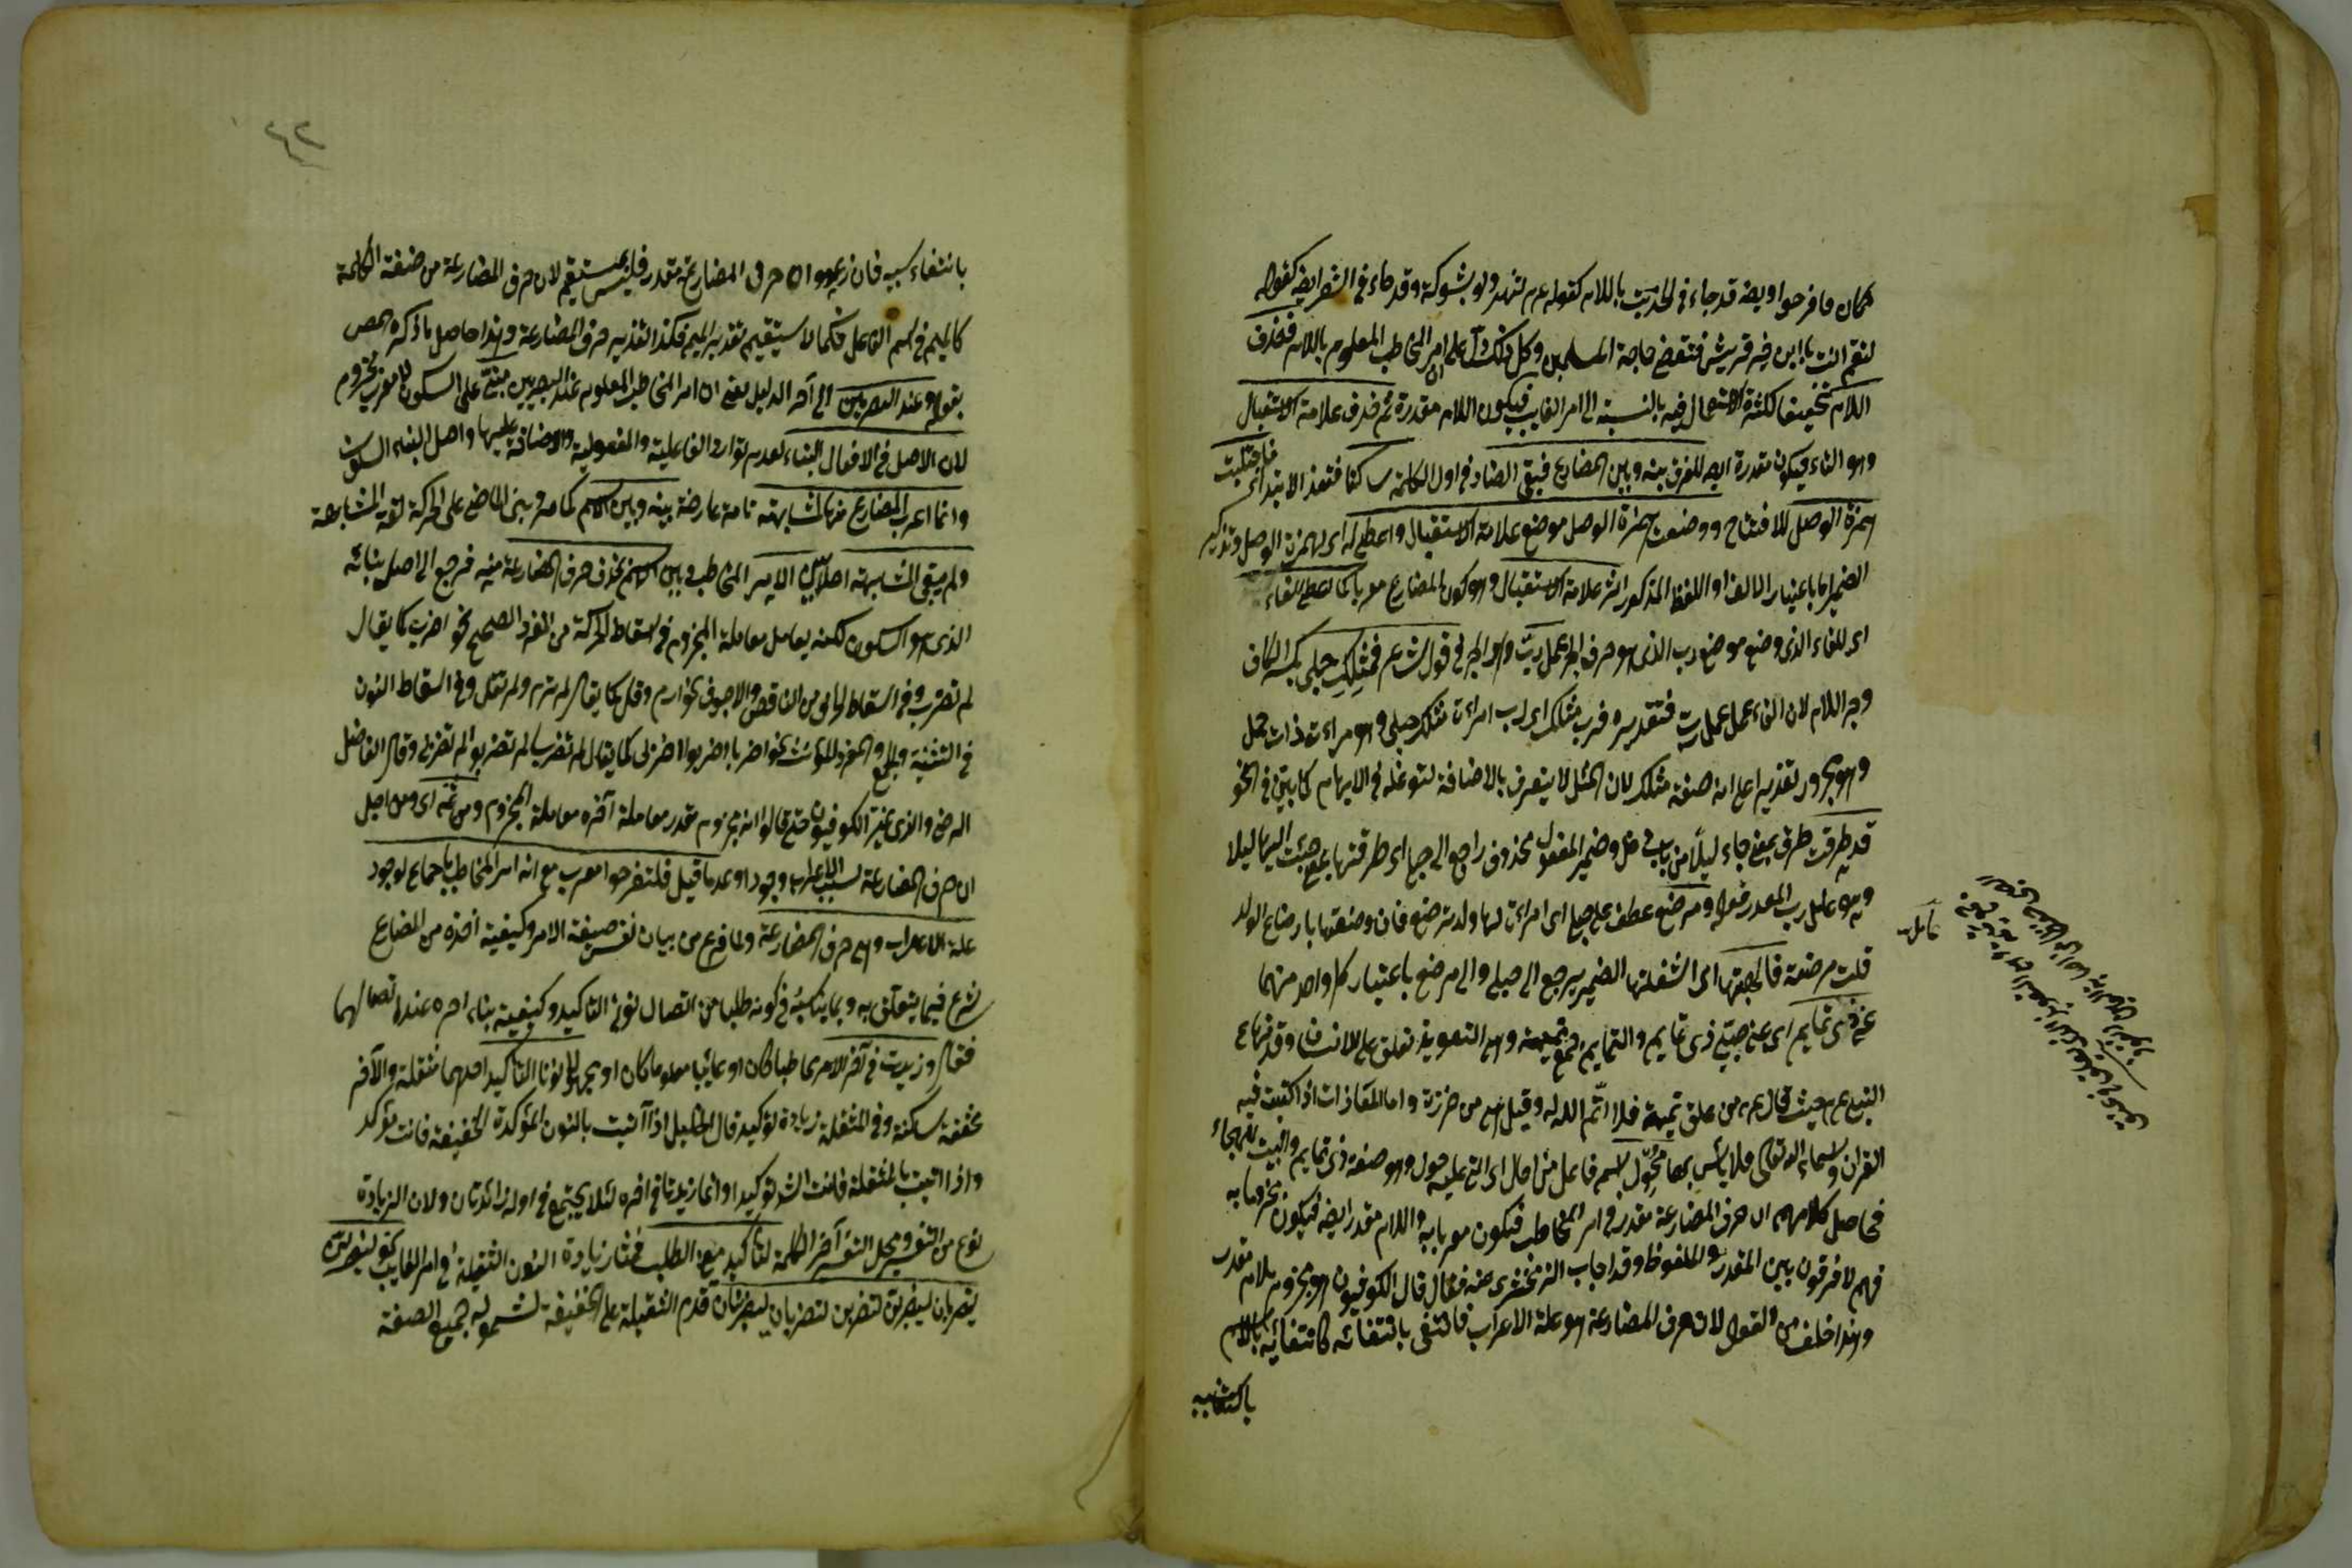 مكان فافرحوا وايضا قد جاء في الحديث باللام كقوله عم لتزره ولو بشوكة وقد جاء في الشعر ايضا كقوله
لتقم انت يا ابن خير قريش فتقضي حاجة المسلمين وكل ذلك دال على ان امر المخاطب المعلوم باللام فحذف
اللام تخفيفا لكثرة الاستعمال فيه بالنسبة الى امر الغايب فيكون اللام مقدرة ثم حذف علامة الاستقبال
وهو التاء فيكون مقدرة ايضا للفرق بينه وبين المضارع فبقي الضاد في اول الكلمة ساكنا فتعذر الابتداء فاجتلبت
همزة الوصل للافتتاح ووضعت همزة الوصل موضع علامة الاستقبال واعطي له اى لهمزة الوصل وتذكير
الضمير اما باعتبار الالف او اللفظ المذكور اثر علامة الاستقبال وهو كون المضارع معربا كما اعطى للفاء
اى للفاء الذى وضع موضع رب الذى هو حرف الجر عمل رب وهو الجر في قول الشاعر فمثلك حبلى بكسر الكاف
وجر اللام لان الفاء عمل عمل رب فتقديره فرب مثلك اى رب امراءة مثلك حبلى وهو امراءة ذات حمل
وهو مجرور تقديرا على انه صفة مثلك لان المثل لا يتعرف بالاضافة لتوغله في الابهام كما بين في النحو
قد طرقت طرق بمعنى جاء ليلا من باب دخل وضمير المفعول محذوف راجع الى حبلى اى طرقتها بمعنى جئت اليها ليلا
وهو عامل رب المقدر قوله ومرضع عطف على حبلى اى امراءة لها ولد ترضع فان وصفتها بارضاع الولد
قلت مرضعة فالهيتها اى اشغلتها الضمير يرجع الى حبلى والى مرضع باعتبار كل واحد منهما
عن ذى تمايم اى عن صبي ذى تمايم والتمايم جمع تميمة وهى التعويذ تعلق على الانسان وقد نها ع
النبي عم حيث قال عم من علق تميمة فلا اتم الله له وقيل هى من خرزة واما المعاذات اذا كتبت فيه
القران واسماء الله تعالى فلا باس بها محول اسم فاعل من احال اى اتى عليه حول وهو صفة ذى تمايم والبيت
فحاصل كلامهم ان حرف المضارعة مقدر في امر المخاطب فيكون معربا به واللام مقدر ايضا فيكون مجزوما به
فهم لا فرقون بين المقدر والملفوظ وقد اجاب الزمخشرى عنه فقال قال الكوفيون هو مجزوم بلام مقدر
وهذا خلف من القول لان حرف المضارعة هو علة الاعراب فانتفى بانتفائه كانتفائه بالاسم
بانتفاء سببه فان زعموا ان حرف المضارعة مقدر فليس بمستقيم لان حرف المضارعة من صيغة الكلمة
كالميم في اسم الفاعل فكما لا يستقيم تقدير الميم فكذا تقدير حرف المضارعة وهذا حاصل ما ذكره المص
بقوله وعند البصريين الى آخر الدليل يعنى ان امر المخاطب المعلوم عند البصريين مبني على السكون لا معرب مجزوم
لان الاصل في الافعال البناء لعدم توارد الفاعلية والمفعولية والاضافة عليها واصل البناء السكون
وانما اعرب المضارع منها لمشابهته تامة عارضة بينه وبين الاسم كما مر وبنى الماضى على الحركة لقوة المشابهة
ولم يبق المشابهة اصلا بين الامر المخاطب وبين الاسم بحذف حرف المضارعة منه فرجع الى اصل بنائه
الذى هو السكون لكنه يعامل معاملة المجزوم في اسقاط الحركة من المفرد الصحيح نحو اضرب كما يقال
لم تضرب وفي اسقاط لامى من الناقص والاجوف نحو ارم وقل كما يقال لم ترم ولم تقل وفي اسقاط النون
في التثنية والجمع والمفرد المؤنث نحو اضربا اضربوا اضربى كما يقال لم تضربا لم تضربوا لم تضربى وقال الفاضل
الرضى والذى غر الكوفيون حتى قالوا انه مجزوم مقدر معاملة آخره معاملة المجزوم ومن ثمه اى ومن اجل
ان حرف المضارعة سبب الاعراب وجودا وعدما قيل فلتفرحوا معرب مع انه امر المخاطب باجماع لوجود
علة الاعراب وهى حرف المضارعة ولما فرغ من بيان نفس صيغة الامر وكيفية اخذه من المضارع
شرع فيما يتعلق به وبما يناسبه في كونه طلبا من اتصال نونى التاكيد وكيفية بناء اخره عند اتصالهما
فقال وزيدت في آخر الامر مخاطبا كان او غائبا معلوما كان او مجهولا نونا التاكيد احدهما مثقلة والآخر
مخففة ساكنة وفي المثقلة زيادة توكيد قال الخليل اذا اتيت بالنون المؤكدة الخفيفة فانت مؤكد
واذا اتيت بالمثقلة فانت اشد توكيدا وانما زيدتا في اخره لئلا يجتمع في اوله زائدتان ولان الزيادة
نوع من التغير ومحل التغير آخر الكلمة لتاكيد معنى الطلب فمثال زيادة النون الثقيلة في امر الغايب نحو ليضربن
ليضربان ليضربن لتضربن لتضربان ليضربنان قدم الثقيلة على الخفيفة لشموله جميع الصيغة